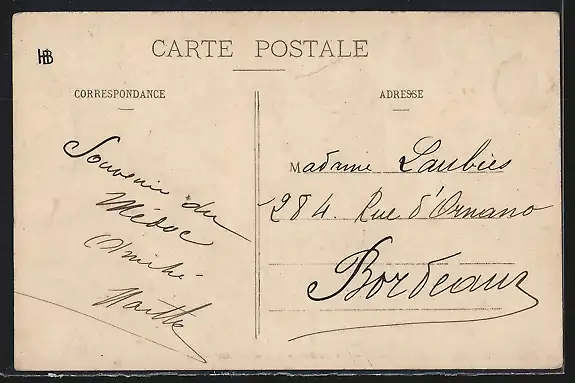 HB
CARTE POSTALE
CORRESPONDANCE
Souvenir du
Médoc
Amitié
ADRESSE
Madame Laubies
284. Rue d'Ornano
Bordeaux